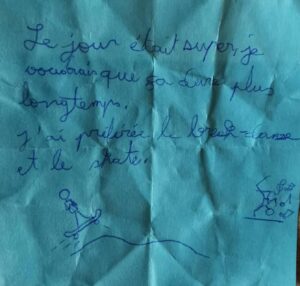 Le jour était super, je
voudrais que ça dure plus
longtemps.
J'ai préférée le break-danse
et le skate.